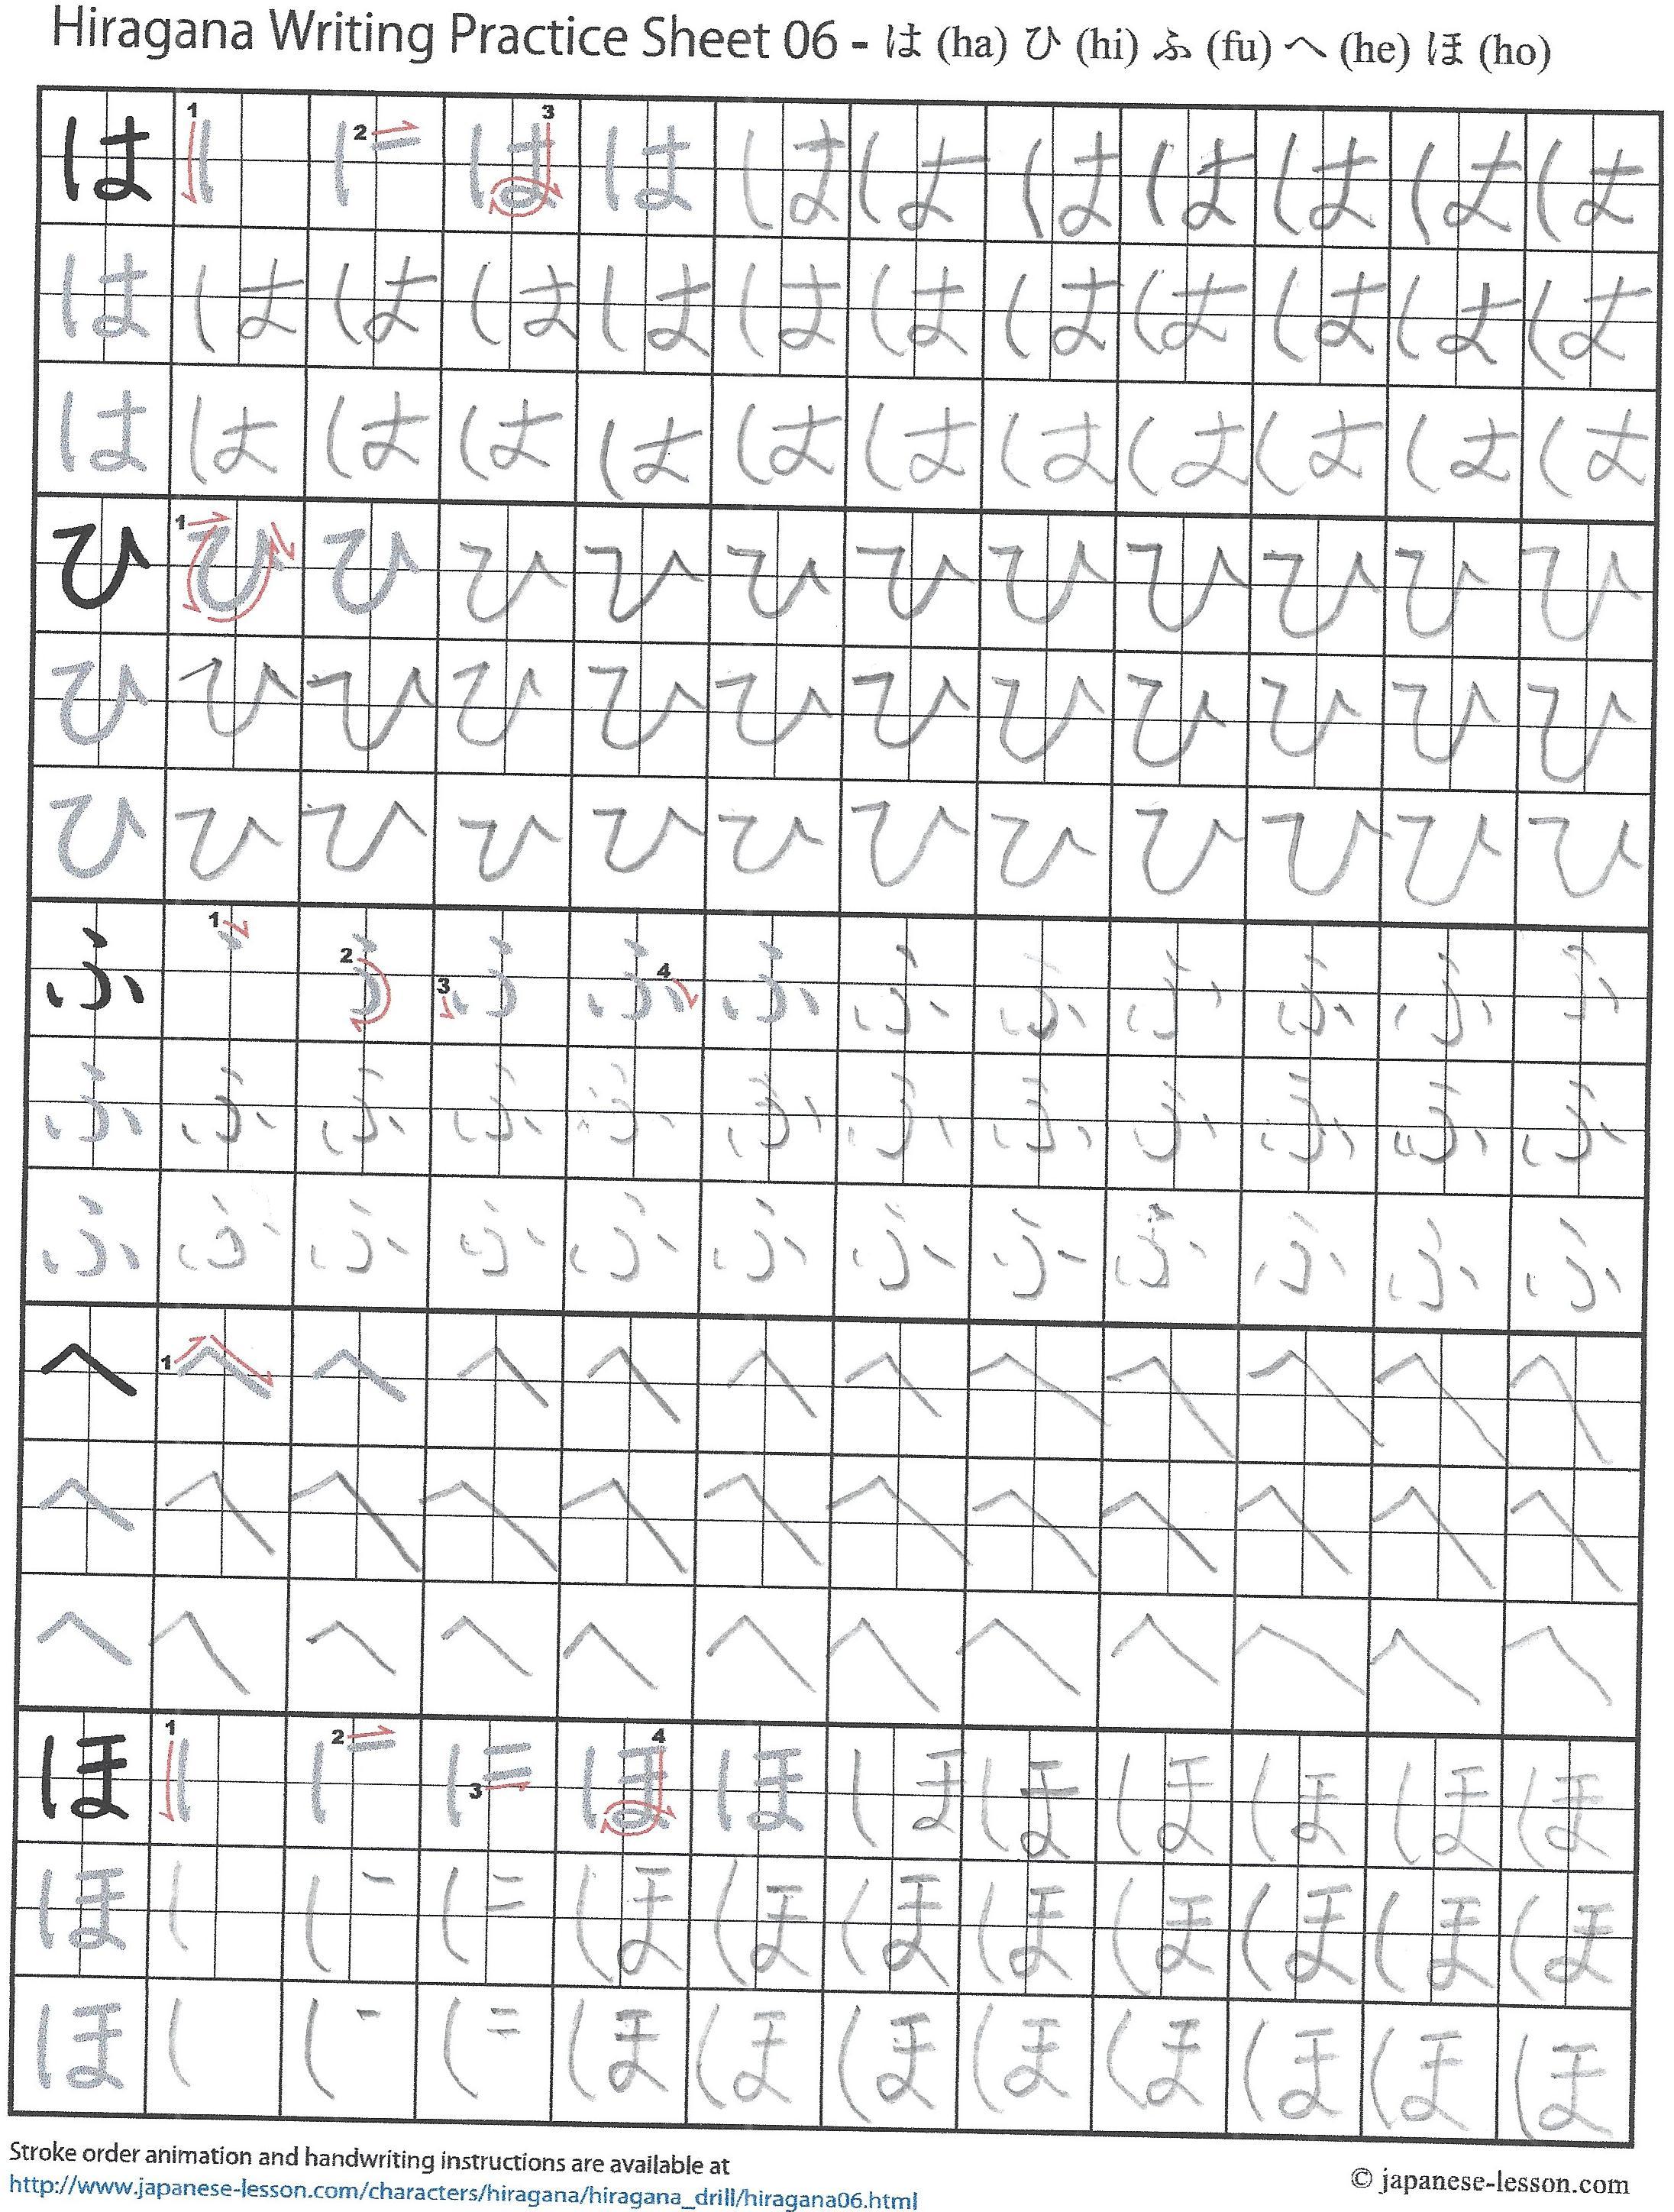 Hiragana Writing Practice Sheet 06 - は (ha) ひ (hi) ふ (fu) へ (he) ほ (ho)
は 1 2 3 は は は は は は は は は
は は は は は は は は は は は は
は は は は は は は は は は は は
ひ 1 ひ ひ ひ ひ ひ ひ ひ ひ ひ ひ ひ
ひ ひ ひ ひ ひ ひ ひ ひ ひ ひ ひ ひ
ひ ひ ひ ひ ひ ひ ひ ひ ひ ひ ひ ひ
ふ 1 2 3 4 ふ ふ ふ ふ ふ ふ ふ ふ
ふ ふ ふ ふ ふ ふ ふ ふ ふ ふ ふ ふ
ふ ふ ふ ふ ふ ふ ふ ふ ふ ふ ふ ふ
へ 1 へ へ へ へ へ へ へ へ へ へ へ
へ へ へ へ へ へ へ へ へ へ へ へ
へ へ へ へ へ へ へ へ へ へ へ へ
ほ 1 2 3 4 ほ ほ ほ ほ ほ ほ ほ ほ
ほ ほ ほ ほ ほ ほ ほ ほ ほ
ほ ほ ほ ほ ほ ほ ほ ほ ほ
Stroke order animation and handwriting instructions are available at
http://www.japanese-lesson.com/characters/hiragana/hiragana_drill/hiragana06.html
© japanese-lesson.com